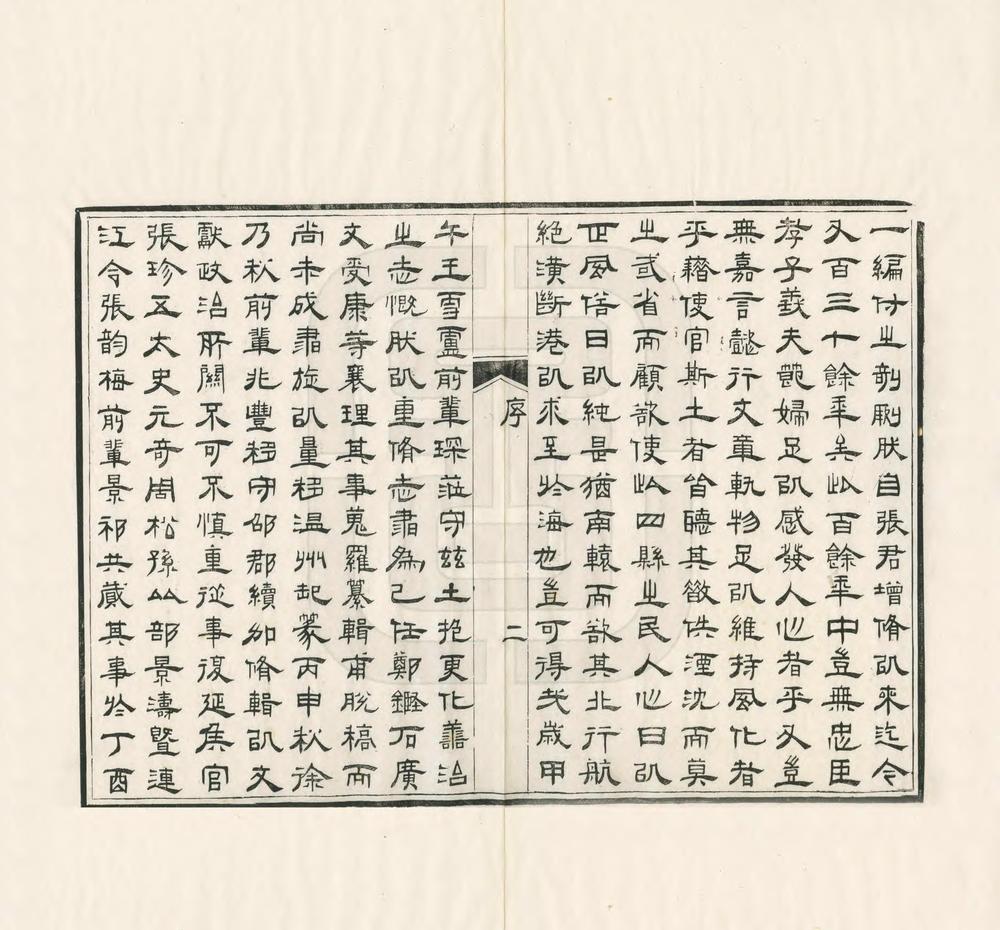 一編付之剞劂肰自張君增脩㕥來迄今
又百三十餘秊矣此百餘秊中豈無忠臣
孝子義夫節婦足㕥感發人心者乎又豈
無嘉言懿行文章軌物足㕥維持風化者
乎藉使官斯土者皆聽其散佚湮沈而莫
之或省而顧欲使此四縣之民人心日㕥
正風俗日㕥純是猶南轅而欲其北行航
絕潢斷港㕥求至於海也豈可得哉歲甲
序
二
午王雪廬前輩琛莅守茲土抱更化善治
之志慨肰㕥重脩志書為己任鄭鑑石廣
文受康等襄理其事蒐羅纂輯甫脫稿而
尚未成書旋㕥量移溫州起篆丙申秋徐
乃秋前輩兆豐移守邵郡續加脩輯㕥文
獻政治所關不可不慎重從事復延矦官
張珍五太史元奇周松孫比部景濤曁連
江令張韵梅前輩景祁共蕆其事於丁酉